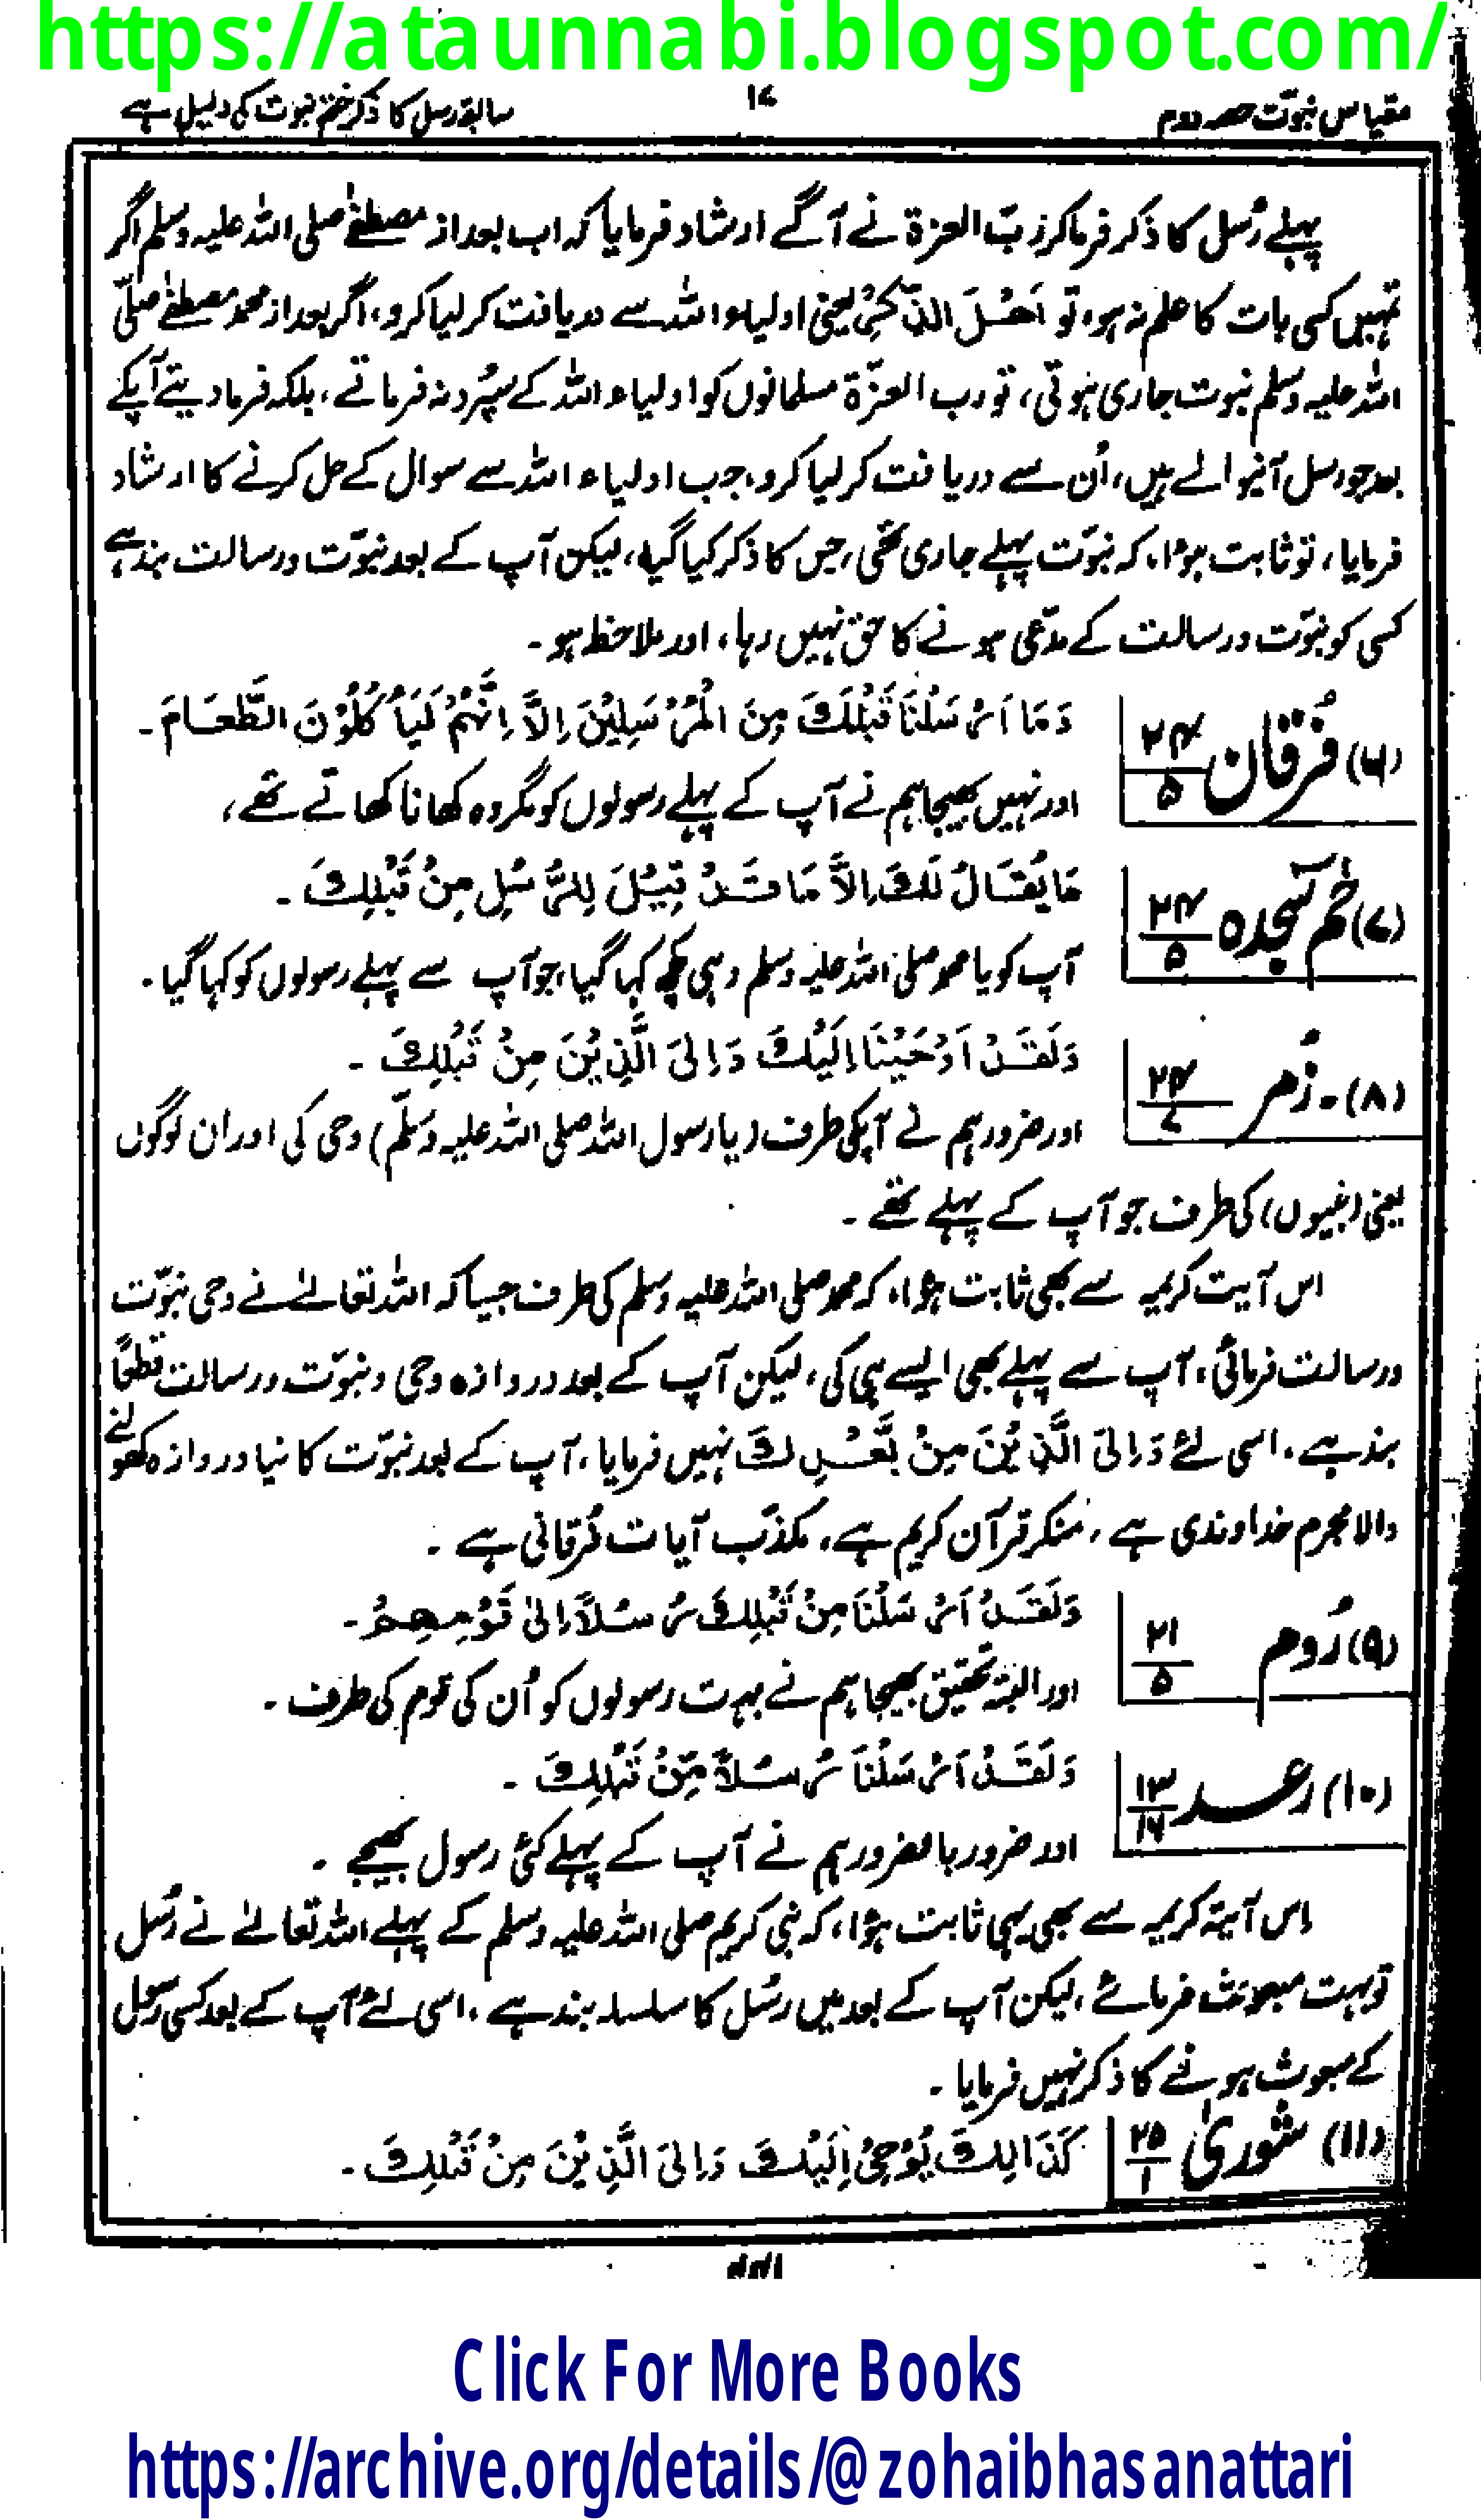 https://ataunnabi.blogspot.com/
مقیاس نبوّت حصہ دوم
۱۷
سابقہ رسل کا ذکر ختم نبوت کی دلیل ہے
پہلے رُسل کا ذکر فرما کر ربّ العزۃ نے آگے ارشاد فرمایا کہ اب بعد از مصطفےٰ صلی اللہ علیہ وسلم اگر
تمہیں کسی بات کا علم نہ ہو، تو اَھْلَ الذِّکْرِ یعنی اولیاء اللہ سے دریافت کر لیا کرو، اگر بعد از محمد مصطفےٰ صلّی
اللہ علیہ وسلم نبوت جاری ہوتی، تو رب العزّۃ مسلمانوں کو اولیاء اللہ کے سپُرد نہ فرماتے، بلکہ فرما دیتے آپکے
بعد جو رسل آنیوالے ہیں، اُن سے دریافت کر لیا کرو، جب اولیاء اللہ سے سوال کے حل کرنے کا ارشاد
فرمایا، تو ثابت ہوا، کہ نبوّت پہلے جاری تھی، جس کا ذکر کیا گیا، لیکن آپ کے بعد نبوّت و رسالت بند ہے
کسی کو نبوّت و رسالت کے مدّعی ہونے کا حق نہیں رہا، اور ملاحظہ ہو۔
(۶) فُرقان ۲۴/۵
وَمَا اَرْسَلْنَا قَبْلَكَ مِنَ الْمُرْسَلِيْنَ اِلَّا اِنَّهُمْ لَيَأْكُلُوْنَ الطَّعَامَ۔
اور نہیں بھیجا ہم نے آپ کے پہلے رسولوں کو مگر وہ کھانا کھاتے تھے،
(۷) حٰم سجدہ ۲۴/۵
مَا يُقَالُ لَكَ اِلَّا مَا قَدْ قِيْلَ لِلرُّسُلِ مِنْ قَبْلِكَ۔
آپ کو یا محمد صلی اللہ علیہ وسلم وہی کچھ کہا گیا، جو آپ سے پہلے رسولوں کو کہا گیا۔
(۸)۔ زُمر ۲۴/۷
وَلَقَدْ اَوْحَيْنَا اِلَيْكَ وَاِلَى الَّذِيْنَ مِنْ قَبْلِكَ۔
اور ضرور ہم نے آپکی طرف (یا رسول اللہ صلی اللہ علیہ وسلّم) وحی کی اور ان لوگوں
یعنی (نبیوں) کی طرف جو آپ کے پہلے تھے۔
اس آیت کریمہ سے بھی ثابت ہوا، کہ محمد صلی اللہ علیہ وسلم کی طرف جیسا کہ اللہ تعالےٰ نے وحی نبوّت
ورسالت فرمائی، آپ سے پہلے بھی ایسے ہی کی، لیکن آپ کے بعد دروازہ وحی و نبوّت و رسالت قطعاً
بند ہے، اسی لئے وَاِلَى الَّذِيْنَ مِنْ بَّعْدِكَ نہیں فرمایا، آپ کے بعد نبوّت کا نیا دروازہ کھولنے
والا مجرم خداوندی ہے، منکر قرآن کریم ہے، مکذّب آیات فُرقانی ہے۔
(۹) رُوم ۲۱/۵
وَلَقَدْ اَرْسَلْنَا مِنْ قَبْلِكَ رُسُلًا اِلٰى قَوْمِهِمْ۔
اور البتہ تحقیق بھیجا ہم نے بہت رسولوں کو اُن کی قوم کی طرف۔
(۱۰) رعد ۱۳/۱۶
وَلَقَدْ اَرْسَلْنَا رُسُلًا مِّنْ قَبْلِكَ۔
اور ضرور بالضرور ہم نے آپ کے پہلے کئی رسول بھیجے۔
اِس آیۃ کریمہ سے بھی یہی ثابت ہوا، کہ نبی کریم صلی اللہ علیہ وسلم کے پہلے اللہ تعالےٰ نے رُسل
تو بہت مبعوث فرمائے، لیکن آپ کے بعد میں رسُل کا سلسلہ بند ہے، اسی لئے آپ کے بعد کسی رسول
کے مبعوث ہونے کا ذکر نہیں فرمایا۔
(۱۱) شورٰی ۲۵/۱
كَذَالِكَ يُوْحِيْ اِلَيْكَ وَاِلَى الَّذِيْنَ مِنْ قَبْلِكَ۔
Click For More Books
https://archive.org/details/@zohaibhasanattari